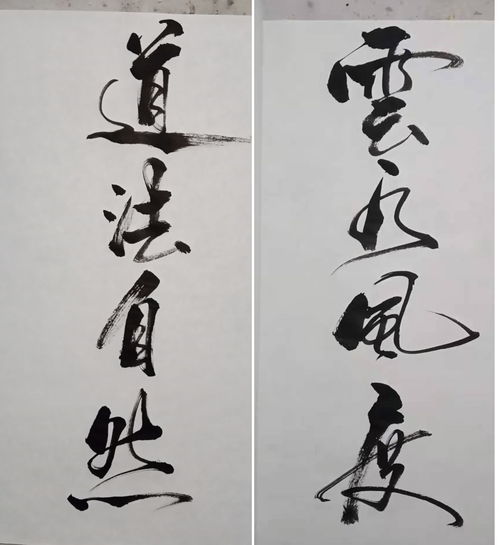 道法自然
雲水風度